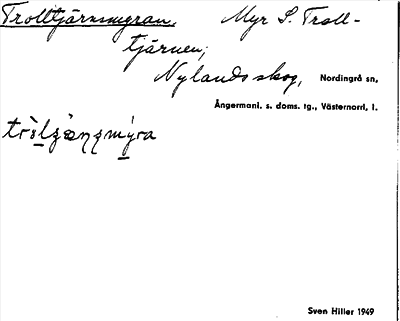 Trolltjärnsmyran, Myr S. Troll-
tjärnen,
Nylands skog, Nordingrå sn,
Ångermanl. s. doms. tg., Västernorrl. l.
Sven Hiller 1949